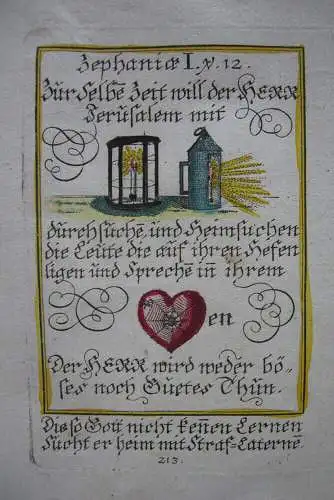 Zephaniæ I. ℣. 12.
Zur Selbē Zeit will der HERR
Jerusalem mit
durchsuchē und Heimsuchen
die Leute die auf ihren Hefen
ligen und Sprechē in ihrem
en
Der HERR wird weder bö-
ses noch Guetes Thun.
Die so Gott nicht keñen Lernen
Sucht er heim mit Straf=Laternē.
213.